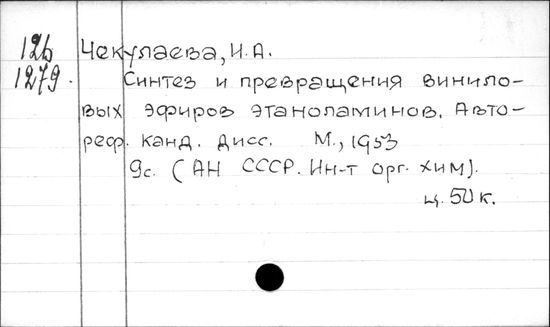 12б Чекулаева, И.А.
1279. Синтез и превращения винило-
вых эфиров этаноламинов. Авто-
реф. канд. дисс. М., 1953
9с. (АН СССР. Ин-т орг. хим).
ц. 50 к.